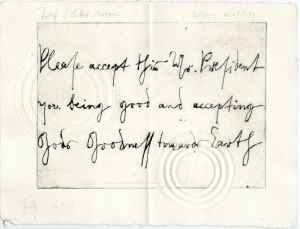 Please accept this Mr. President
you, being good and accepting
Gods Goodness towards Earth